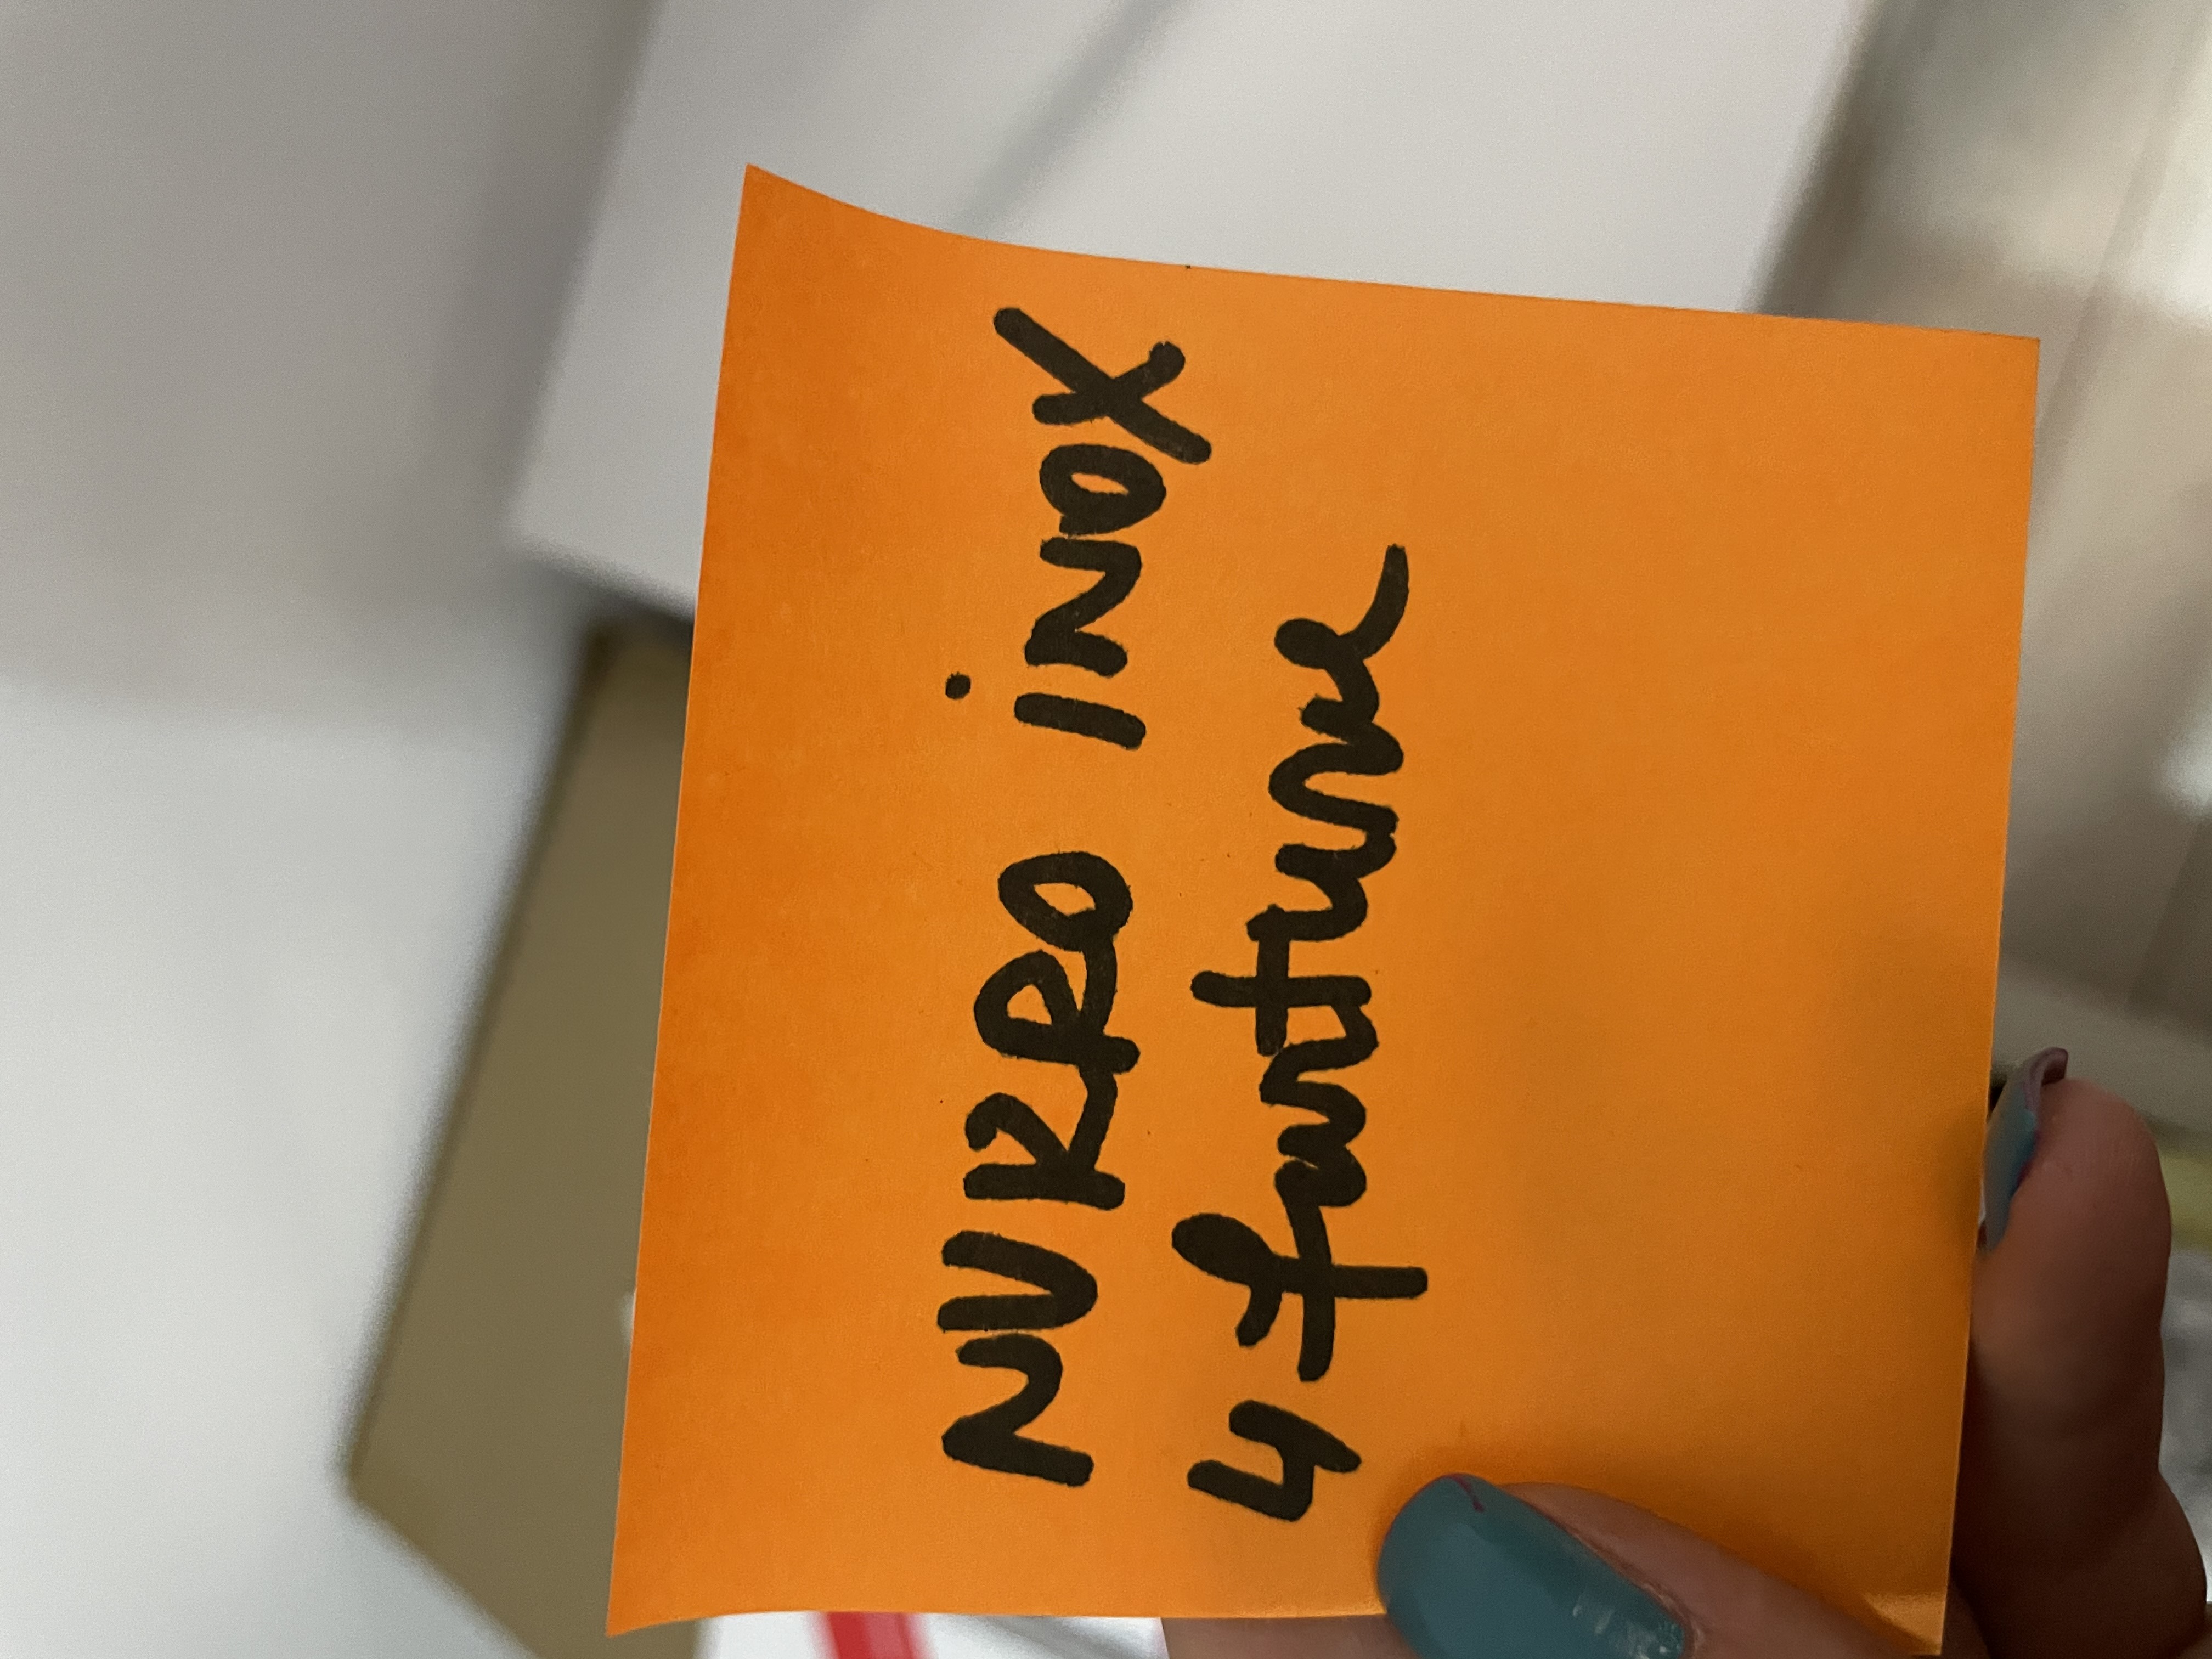 NURRO iNOX
4 farturie